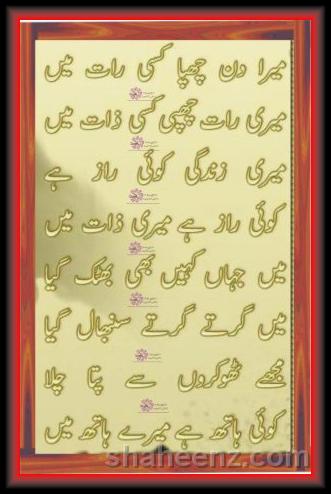 میرا دن چھپا کسی رات میں
میری رات چھپی کسی ذات میں
میری زندگی کوئی راز ہے
کوئی راز ہے میری ذات میں
میں جہاں کہیں بھی بھٹک گیا
میں گرتے گرتے سنبھال گیا
مجھے ٹھوکروں سے پتا چلا
کوئی ہاتھ ہے میرے ہاتھ میں
shaheenz.com